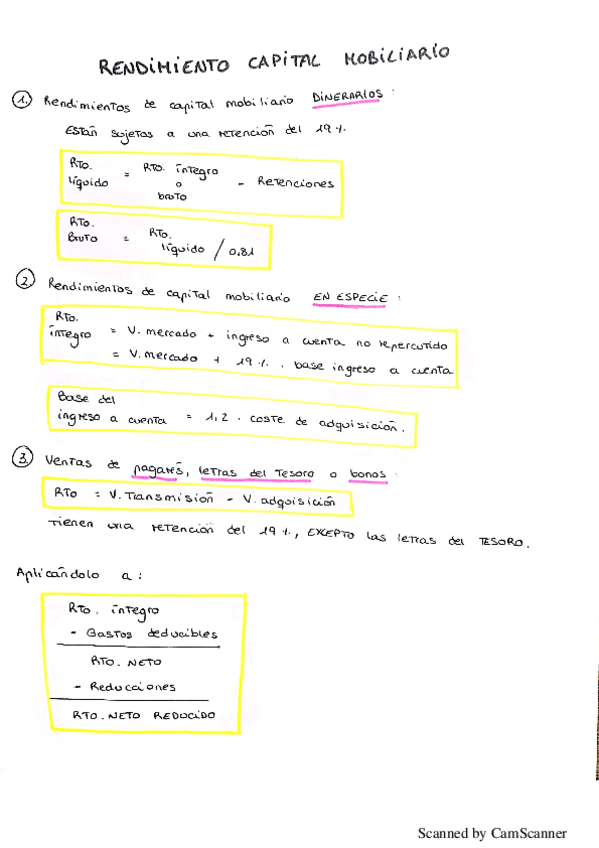 RENDIMIENTO CAPITAL MOBILIARIO
1. Rendimientos de capital mobiliario DINERARIOS :
Están sujetas a una retención del 19 %.
Rto. líquido = Rto. íntegro o bruto - Retenciones
Rto. Bruto = Rto. líquido / 0,81
2. Rendimientos de capital mobiliario EN ESPECIE :
Rto. íntegro = V. mercado + ingreso a cuenta no repercutido
= V. mercado + 19 % . base ingreso a cuenta
Base del
ingreso a cuenta = 1,2 . coste de adquisición.
3. Ventas de pagarés, letras del Tesoro o bonos :
RTO = V. Transmisión - V. adquisición
Tienen una retención del 19 %, EXCEPTO las letras del TESORO.
Aplicándolo a :
Rto. íntegro
- Gastos deducibles
RTO. NETO
- Reducciones
RTO. NETO REDUCIDO
Scanned by CamScanner